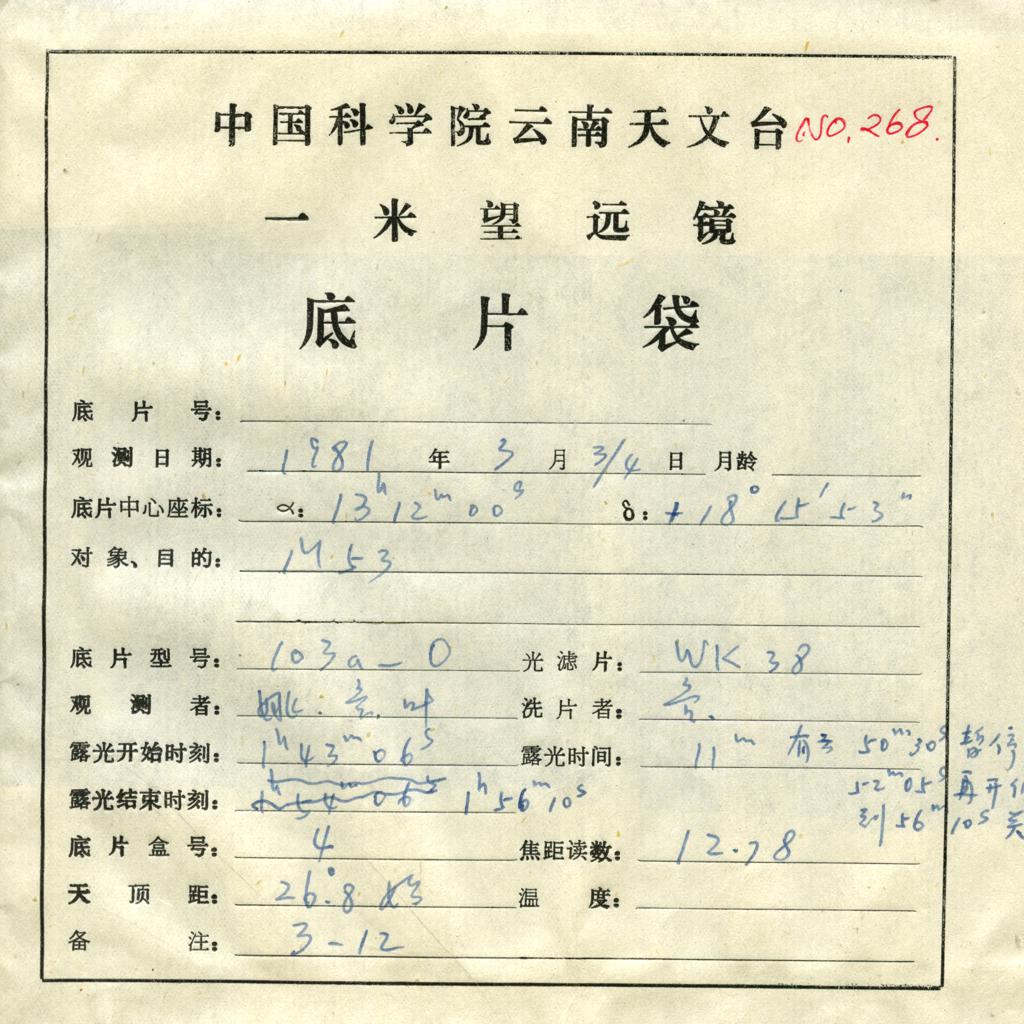 中国科学院云南天文台 NO.268.
一米望远镜
底片袋
底片号:
观测日期: 1981 年 3 月 3/4 日 月龄
底片中心座标: α: 13h 12m 00s δ: +18° 15′ 53″
对象、目的: M53
底片型号: 103a-O 光滤片: WK 38
观测者: 姚. 叶 洗片者:
露光开始时刻: 1h 43m 06s 露光时间: 11m 有云 50m 30s 暂停
52m 05s 再开
露光结束时刻: 1h 54m 06s 1h 56m 10s 到 56m 10s 关
底片盒号: 4 焦距读数: 12.78
天顶距: 26°.8 温度:
备注: 3-12